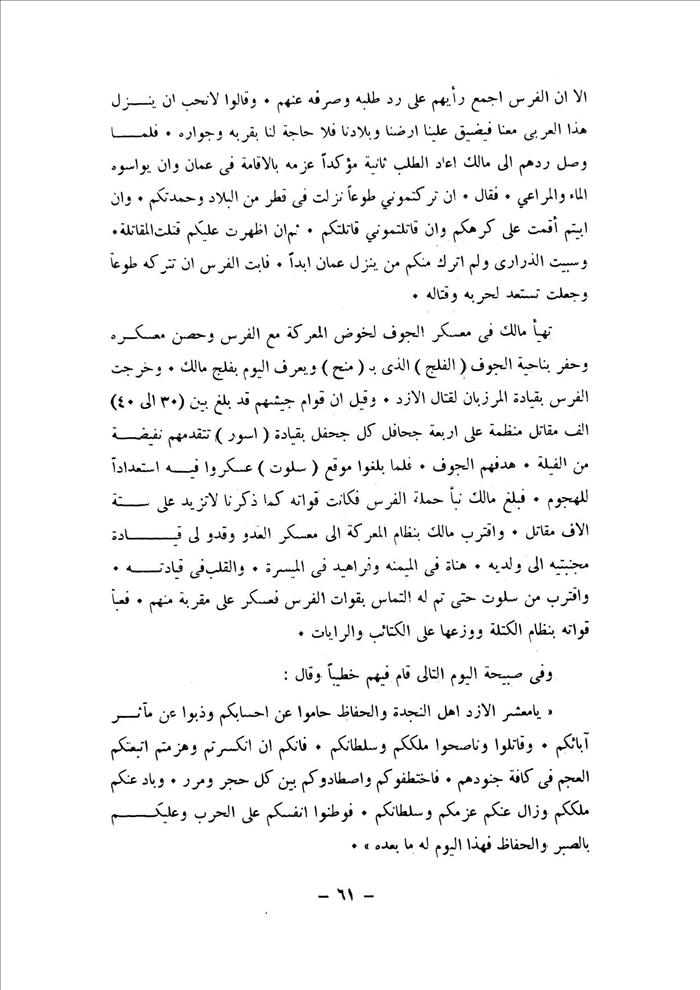 الا ان الفرس اجمع رأيهم على رد طلبه وصرفه عنهم ٠ وقالوا لانحب ان ينــزل
هذا العربى معنا فيضيق علينا ارضنا وبلادنا فلا حاجة لنا بقربه وجواره ٠ فلمــا
وصل ردهم الى مالك اعاد الطلب ثانية مؤكداً عزمه بالاقامة فى عمان وان يواسوه
الماء والمراعي ٠ فقال ٠ ان تركتموني طوعاً نزلت فى قطر من البلاد وحمدتكم ٠ وان
ابيتم أقمت على كرهكم وان قاتلتموني قاتلتكم ٠ ثم ان اظهرت عليكم قتلت المقاتلة٠
وسبيت الذرارى ولم اترك منكم من ينزل عمان ابداً ٠ فابت الفرس ان تتركه طوعا
وجعلت تستعد لحربه وقتاله ٠
تهيأ مالك فى معسكر الجوف لخوض المعركة مع الفرس وحصن معسكــره
وحفر بناحية الجوف ( الفلج ) الذى بـ ( منح ) ويعرف اليوم بفلج مالك ٠ وخرجت
الفرس بقيادة المرزبان لقتال الازد ٠ وقيل ان قوام جيشهم قد بلغ بين (٣٠ الى ٤٠)
الف مقاتل منظمة على اربعة جحافل كل جحفل بقيادة ( اسور ) تتقدمهم نفيضة
من الفيلة ٠ هدفهم الجوف ٠ فلما بلغوا موقع ( سلوت ) عسكروا فيــه استعداداً
للهجوم ٠ فبلغ مالك نبأ حملة الفرس فكانت قواته كما ذكرنا لاتزيد على ستة
الاف مقاتل ٠ واقترب مالك بنظام المعركة الى معسكر العدو وقدو لى قيــادة
مجنبتيه الى ولديه ٠ هناة فى الميمنه وفراهيد فى الميسرة ٠ والقلب فى قيادتــه ٠
واقترب من سلوت حتى تم له التماس بقوات الفرس فعسكر على مقربة منهم ٠ فعبأ
قواته بنظام الكتلة ووزعها على الكتائب والرايات ٠
وفى صبيحة اليوم التالى قام فيهم خطيباً وقال :
« يامعشر الازد اهل النجدة والحفاظ حاموا عن احسابكم وذبوا عن مآثــر
آبائكم ٠ وقاتلوا وناصحوا ملككم وسلطانكم ٠ فانكم ان انكسرتم وهزمتم اتبعتكم
العجم فى كافة جنودهم ٠ فاختطفوكم واصطادوكم بين كل حجر ومرر ٠ وباد عنكم
ملككم وزال عنكم عزمكم وسلطانكم ٠ فوطنوا انفسكم على الحرب وعليكــم
بالصبر والحفاظ فهذا اليوم له ما بعده » ٠
– ٦١ –